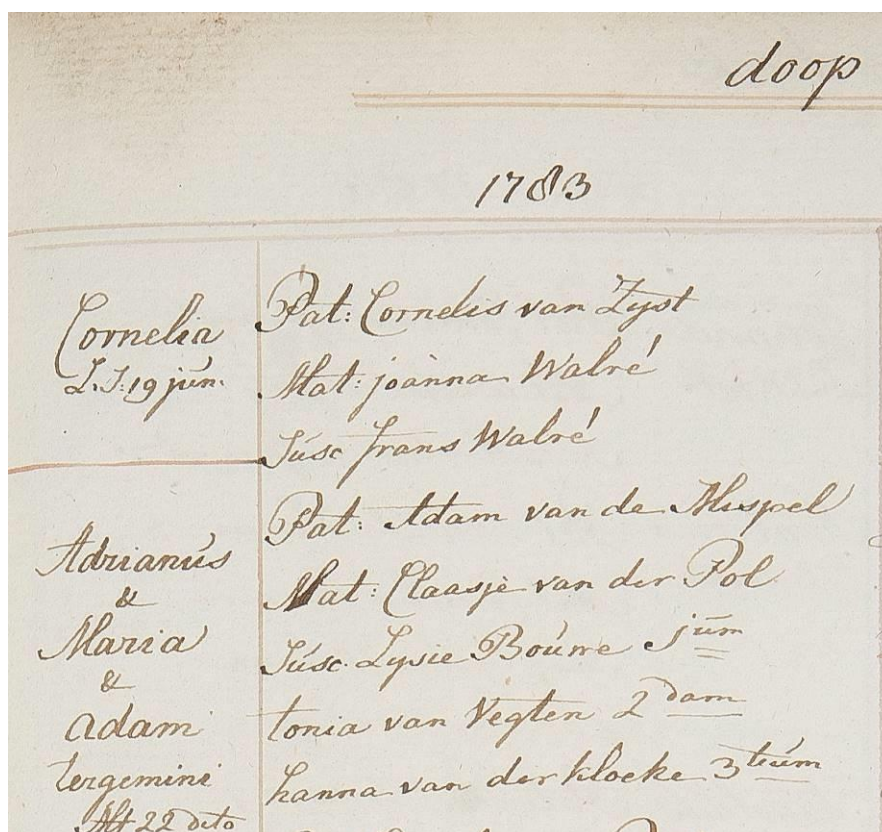 doop
1783
Cornelia
L. J: 19 jún.
Pat: Cornelis van Zyst
Mat: joánna Walré
Súsc frans Walré
Adrianús
&
Maria
&
adam
tergemini
Alt 22 dito
Pat: Adam van de Mispel
Mat: Claasje van der Pol
Súsc. Lysie Boúrre júm
tonia van Vegten 2 dam
hanna van der kloeke 3 tiúm